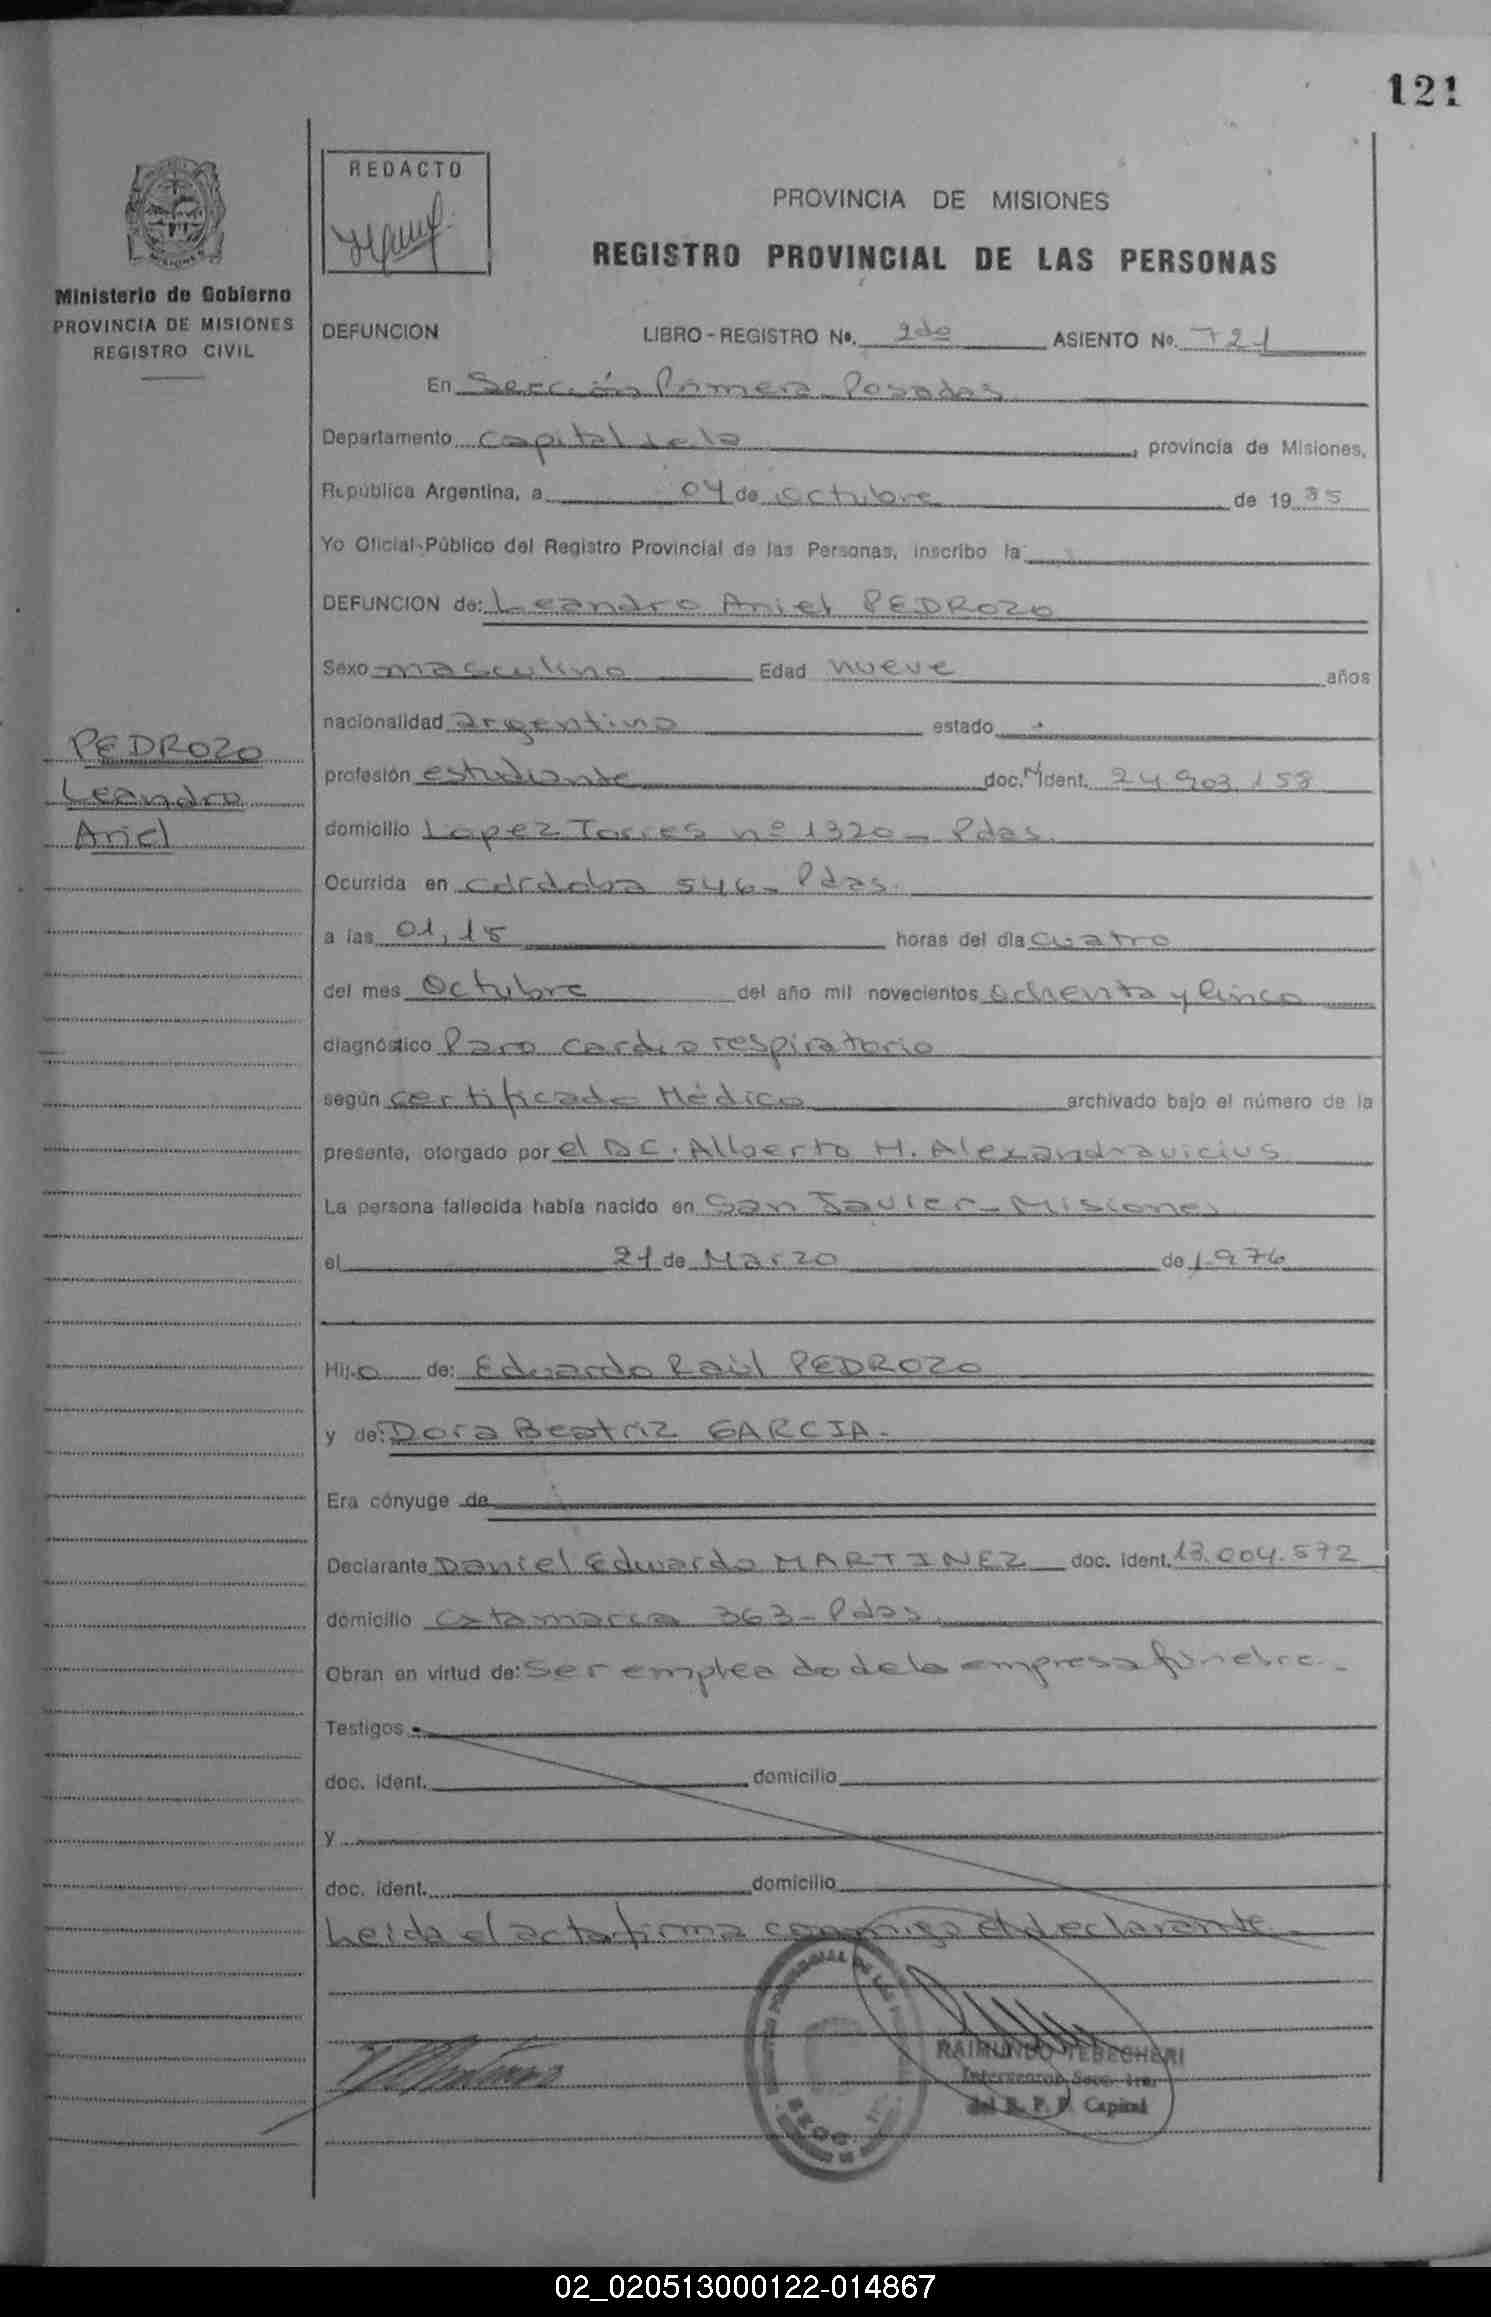 121
REDACTO
PROVINCIA DE MISIONES
REGISTRO PROVINCIAL DE LAS PERSONAS
Ministerio de Gobierno
PROVINCIA DE MISIONES
REGISTRO CIVIL
DEFUNCION LIBRO-REGISTRO Nº. 2do ASIENTO Nº. 721
En Sección Primera Posadas
Departamento Capital de la, provincia de Misiones,
República Argentina, a 04 de Octubre de 1985
Yo Oficial Público del Registro Provincial de las Personas, inscribo la
DEFUNCION de: Leandro Ariel PEDROZO
Sexo masculino Edad nueve años
nacionalidad argentina estado
PEDROZO
Leandro
Ariel
profesión estudiante doc. Nº ident. 24.903.158
domicilio Lopez Torres nº 1320 - Pdas.
Ocurrida en Córdoba 546 - Pdas.
a las 01,15 horas del día cuatro
del mes Octubre del año mil novecientos ochenta y cinco
diagnóstico Paro cardio respiratorio
según certificado Médico archivado bajo el número de la
presente, otorgado por el Dr. Alberto H. Alexandravicius
La persona fallecida había nacido en San Javier - Misiones
el 21 de Marzo de 1.976
Hijo de: Eduardo Raúl PEDROZO
y de: Dora Beatriz GARCIA.
Era cónyuge de
Declarante Daniel Eduardo MARTINEZ doc. ident. 13.004.572
domicilio Catamarca 363 - Pdas.
Obran en virtud de: Ser empleado de la empresa fúnebre.-
Testigos
doc. ident. domicilio
y
doc. ident. domicilio
Leída el acta firma conmigo el declarante.
RAIMUNDO TEBECHERI
Interventor Secc. 1ra.
del R. P. P. Capital
02_020513000122-014867